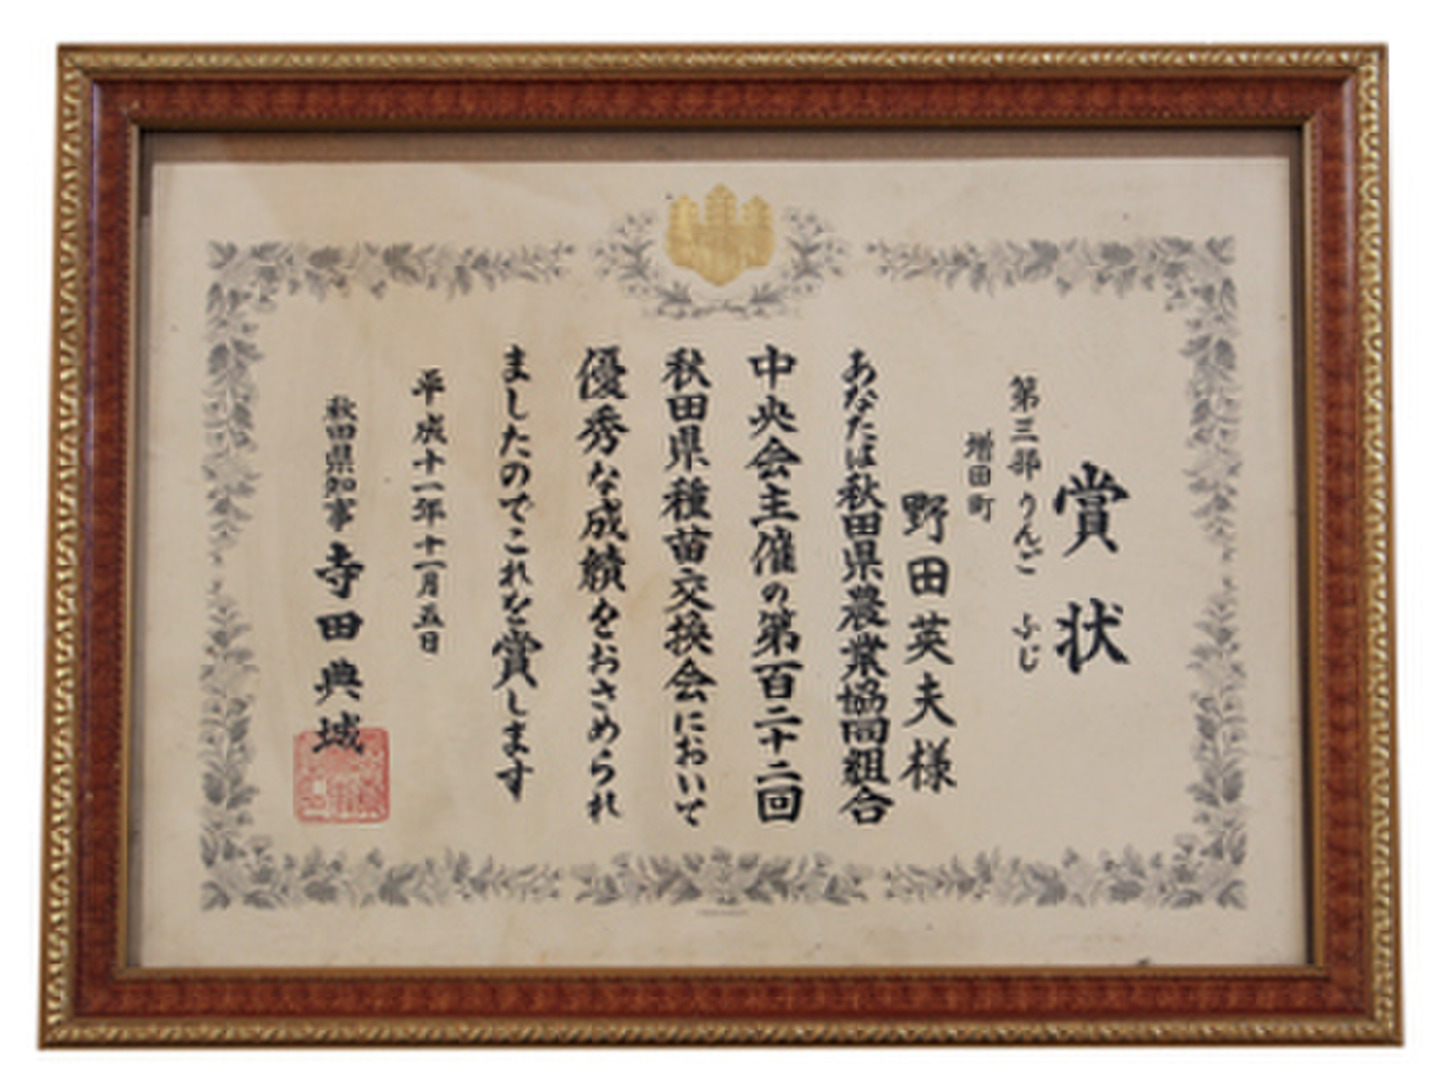 賞状
第三部 りんご ふじ
増田町
野田英夫様
あなたは秋田県農業協同組合
中央会主催の第百二十二回
秋田県種苗交換会において
優秀な成績をおさめられ
ましたのでこれを賞します
平成十一年十一月五日
秋田県知事 寺田典城